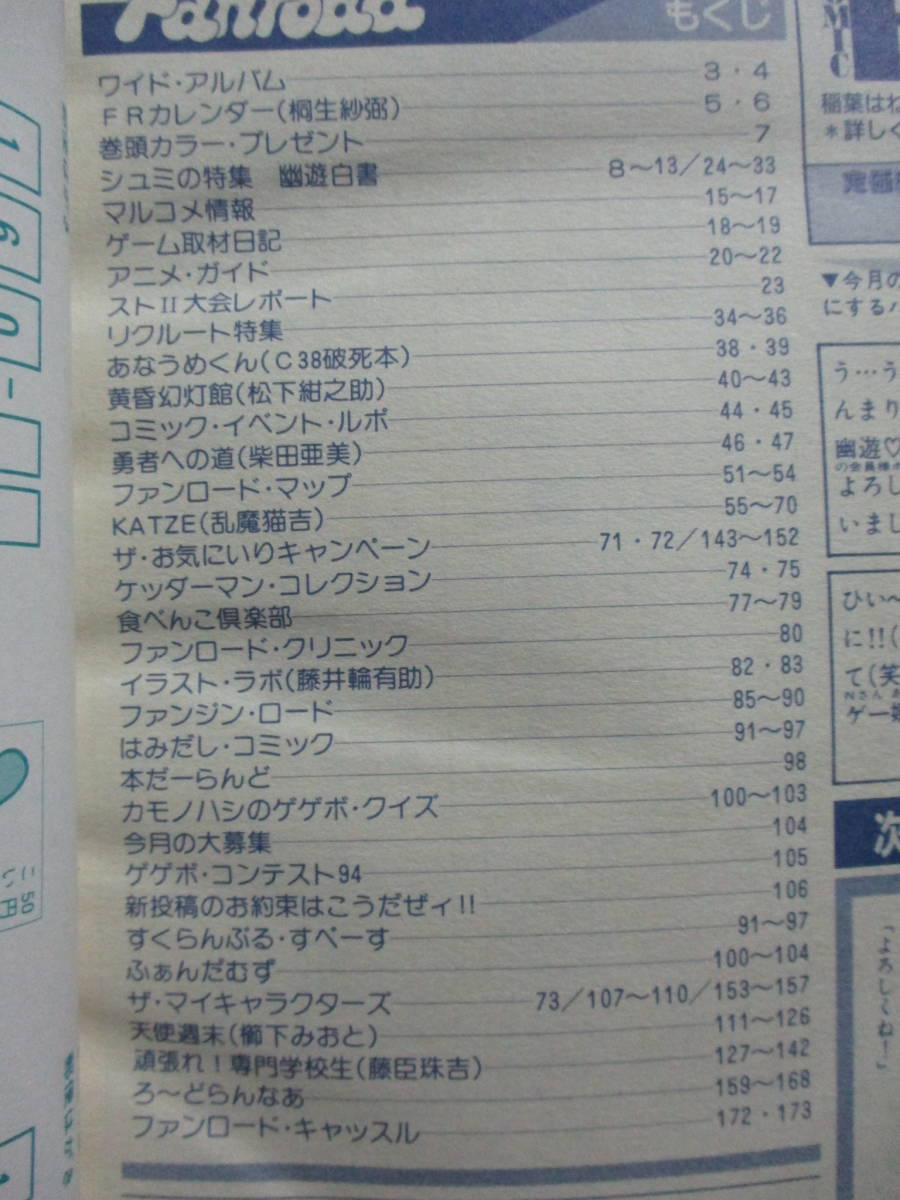 Fanroad
もくじ
ワイド・アルバム 3・4
FRカレンダー(桐生紗弥) 5・6
巻頭カラー・プレゼント 7
シュミの特集 幽遊白書 8〜13/24〜33
マルコメ情報 15〜17
ゲーム取材日記 18〜19
アニメ・ガイド 20〜22
ストII大会レポート 23
リクルート特集 34〜36
あなうめくん(C38破死本) 38・39
黄昏幻灯館(松下紺之助) 40〜43
コミック・イベント・ルポ 44・45
勇者への道(柴田亜美) 46・47
ファンロード・マップ 51〜54
KATZE(乱魔猫吉) 55〜70
ザ・お気にいりキャンペーン 71・72/143〜152
ケッダーマン・コレクション 74・75
食べんこ倶楽部 77〜79
ファンロード・クリニック 80
イラスト・ラボ(藤井輪有助) 82・83
ファンジン・ロード 85〜90
はみだし・コミック 91〜97
本だーらんど 98
カモノハシのゲゲボ・クイズ 100〜103
今月の大募集 104
ゲゲボ・コンテスト94 105
新投稿のお約束はこうだぜィ!! 106
すくらんぶる・すぺーす 91〜97
ふぁんだむず 100〜104
ザ・マイキャラクターズ 73/107〜110/153〜157
天使週末(櫛下みおと) 111〜126
頑張れ!専門学校生(藤臣珠吉) 127〜142
ろ〜どらんなぁ 159〜168
ファンロード・キャッスル 172・173
MIC
稲葉はね
*詳しく
▼今月の
にするハ
う…う
んまり
幽遊♡
の会員様
よろし
いまし
ひい〜
に!!(
て(笑
Nさん
ゲー
次
「よろしくね!」
160-
50円